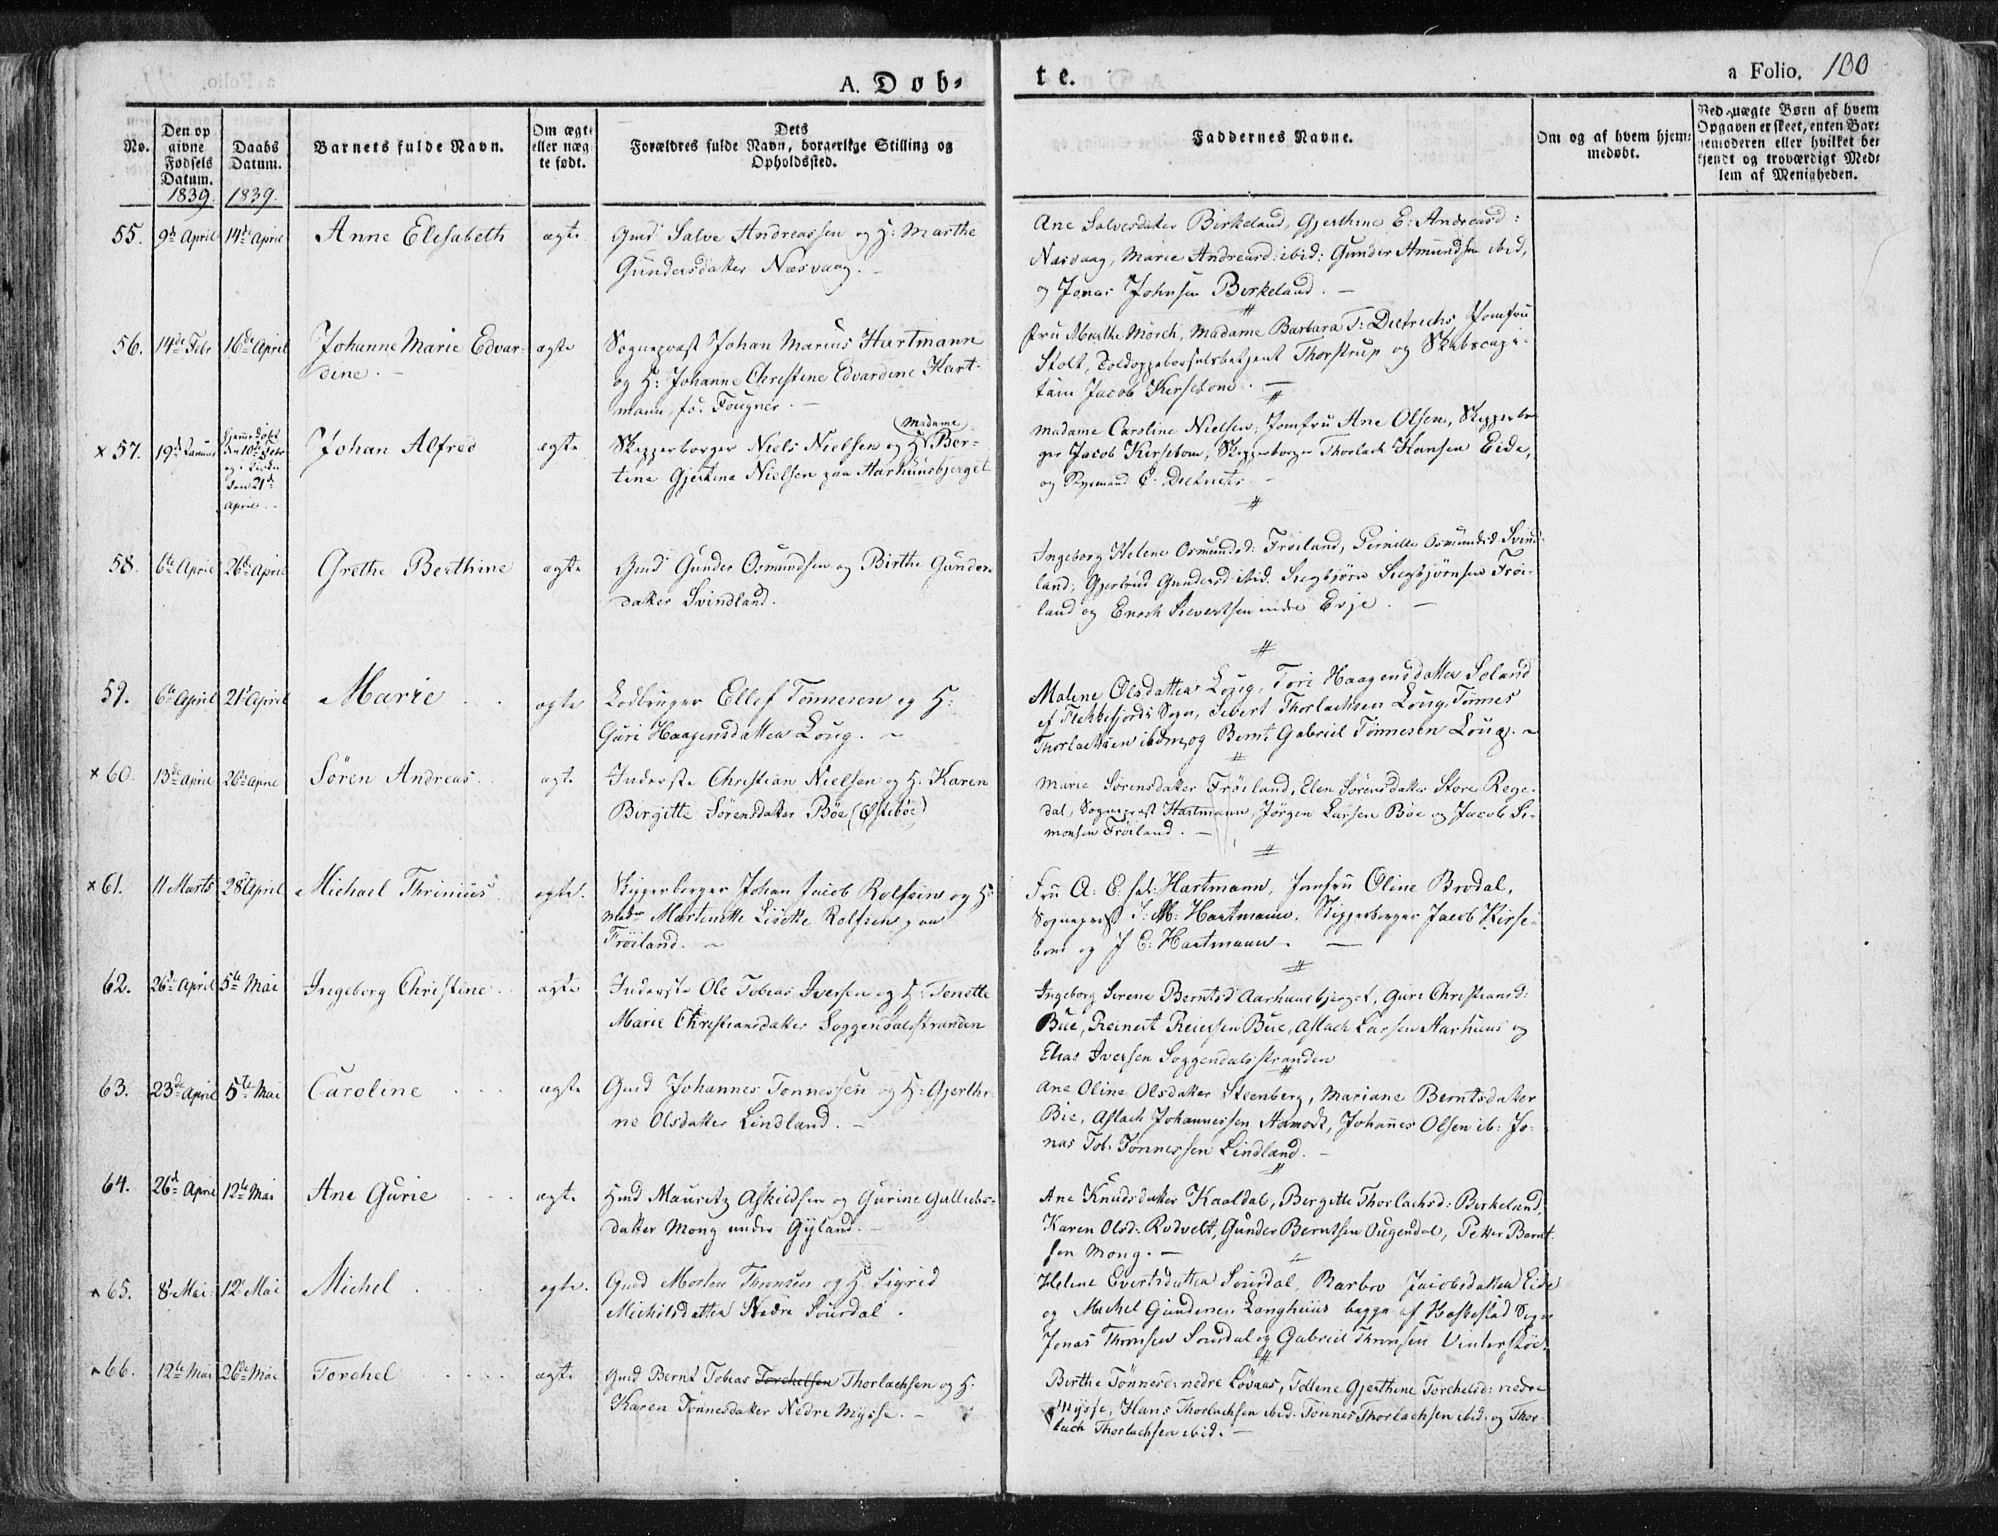 A. Døb-
te.
a Folio. 100
No.
Den op
givne
Fødsels
Datum.
1839.
Daabs
Datum.
1839.
Barnets fulde Navn.
Om ægte
eller uæg-
te født.
Dets
Forældres fulde Navn, borgerlige Stilling og
Opholdssted.
Faddernes Navne.
Om og af hvem hjem-
medøbt.
Ved uægte Børn af hvem
Opgaven er skeet, enten Bar-
nemoderen eller hvilket be-
kjendt og troværdigt Med-
lem af Menigheden.
55. 9d April 14d April Anne Elisabeth ægte Gmd Salve Andreassen og H: Marthe
Gundersdatter Næsvaag. -
Ane Salvesdatter Birkeland, Gjerthine E: Andreasd:
Næsvaag, Marie Andreasd: ibid: Gunder Amundsen ibid,
og Jonas Johnsen Birkeland. -
56. 14de Febr 16de April Johanne Marie Edvar-
dine. -
ægte Sognepræst Johan Marius Hartmann
og H: Johanne Christine Edvardine Hart-
mann, fö. Fougner. -
Fru Marthe Mörch, Madame Barbara T: Dietrichs, Jomfru
Stolt, Toldoppebørselsbetjent Thorstrup og Skibscapi-
tain Jacob Kirsebom. -
x 57. 19d Januar Hjemmedöbt
den 10de Febr
og i Kirken
den 21de
April. Johan Alfred ægte Skipperborger Niels Nielsen og H: Madame Ber-
tine Gjertine Nielsen paa Aarhuusbjerget
Madame Caroline Nielsen, Jomfru Ane Olsen, Skipperbor
ger Jacob Kirsebom, Skipperborger Thorlach Hansen Eide,
og Styrmand C: Dietrichs. -
58. 6te April 26de April Grethe Berthine ægte Gmd Gunder Osmundsen og Birthe Gunders
datter Svindland.
Ingeborg Helene Osmundsd: Fröiland, Pernille Osmundsd: Svind-
land, Gjertrud Gundersd: ibid. Siegbjörn Siegbjörnsen Fröi-
land og Enoch Sievertsen indre Evje. -
59. 6te April 21d April Marie ægte Lodbruger Ellef Tönnesen og H:
Guri Haagensdatter Loug. -
Malene Olsdatter Loug, Tori Haagensdatter Soland
af Flekkefjords Sogn, Sivert Thorlachsen Loug, Tönnes
Thorlachsen ibdm, og Bernt Gabriel Tönnesen Loug. -
x 60. 13de April 26de April Sören Andreas ægte Inderste Christian Nielsen og H: Karen
Birgitte Sörensdatter Böe (Østeböe)
Marie Sörensdatter Fröiland, Elen Sörensdatter Store Rege-
dal, Sognepræst Hartmann, Jörgen Larsen Böe og Jacob Si-
monsen Fröiland. -
x 61. 11 Marts 28 April Michael Thrinius ægte. Skipperborger Johan Jacob Rolfsen og H:
Mad: Martinette Lisette Rolfsen paa
Fröiland. -
Fru A: C: sal: Hartmann, Jomfru Oline Brodal,
Sognepræst J: M: Hartmann, Skipperborger Jacob Kirse-
bom og J E: Hartmann. -
62. 26d April 5te Mai Ingeborg Christine ægte Inderste Ole Tobias Iversen og H: Tonette
Marie Christiansdatter Soggendalsstranden
Ingeborg Serene Berntsd: Aarhuusbjerget, Guri Christiansd:
Bue, Reinert Reiersen Bue, Aslach Larsen Aarhuus og
Elias Iversen Soggendalsstranden
63. 23de April 5te Mai Caroline ægte Gmd Johannes Tönnessen og H: Gjerthi-
ne Olsdatter Lindland. -
Ane Oline Olsdatter Steenberg, Mariane Berntsdatter
Bie, Aslach Johannessen Aamodt, Johannes Olsen ib: Jo-
nas Tob. Tönnessen Lindland. -
64. 26d April 12te Mai Ane Gurie ægte Hmd Mauritz Askildsen og Gurine Gullichs-
datter Mong under Gyland. -
Ane Knudsdatter Kaaldal, Bergitte Thorlachsd: Birkeland,
Karen Olsd: Rodvelt, Gunder Berntsen Ougendal, Petter Bernt-
sen Mong. -
65. 8d Mai 12te Mai Michel ægte. Gmd Morten Thronsen og H: Sigrid
Michelsdatter Nedre Sourdal.
Helene Evertsdatter Sourdal, Barbro Jacobsdatter Eide
og Michel Gundersen Langhuus begge af Hæskestad Sogn
Jonas Thronsen Sourdal og Gabriel Thronsen Vinterstöe.
66. 12te Mai 26de Mai Torchel ægte Gmd Bernt Tobias Torchelsen Thorlachsen og H:
Karen Tönnesdatter Nedre Mysse. -
Birthe Tönnesd: nedre Lövaas, Tollene Gjerthine Torchelsd: nedre
Mysse, Hans Thorlachsen ibid. Tönnes Thorlachsen ibid: og Thor-
lach Thorlachsen ibid. -